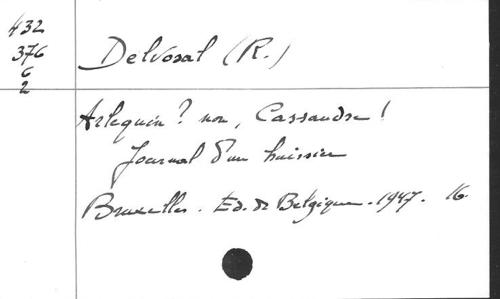 432
376
6
2
Delvosal (R.)
Arlequin ? non, Cassandre !
Journal d'un huissier
Bruxelles. Ed. de Belgique. 1947. 16